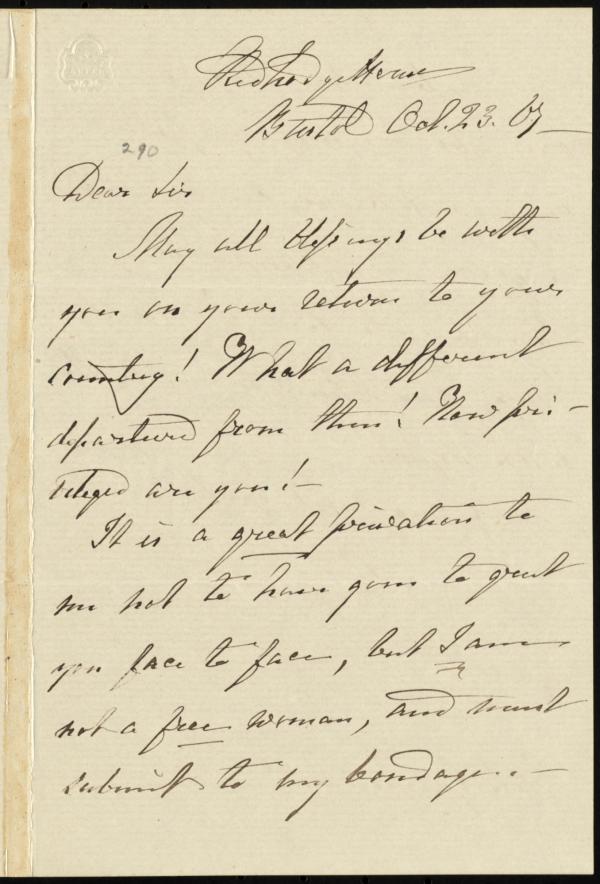 Red Lodge House
Bristol Oct. 23. 67
290
Dear Sir
May all blessings be with
you on your return to your
country! What a different
departure from then! How privi-
leged are you!—
It is a great privation to
me not to have gone to greet
you face to face, but I am
not a free woman, and must
submit to my bondage. —